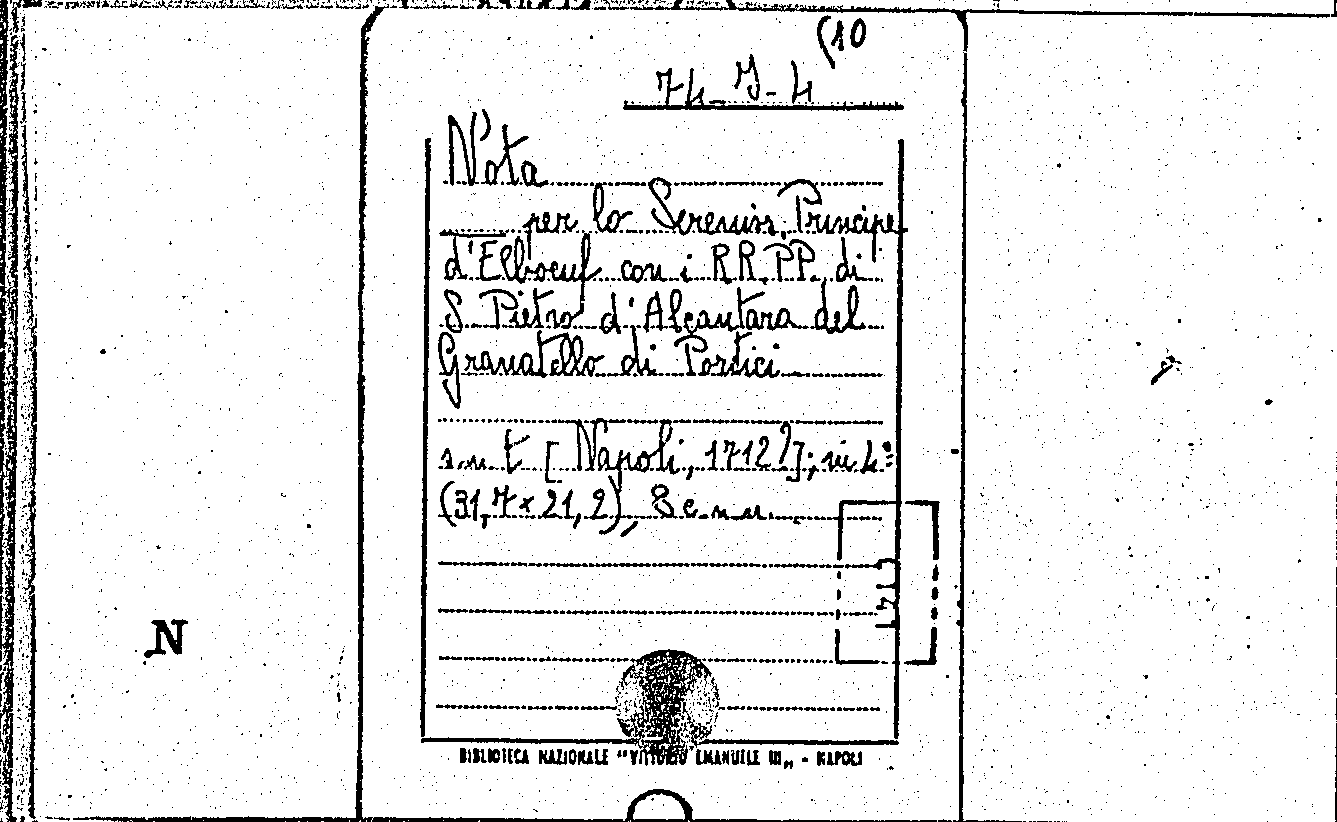 (10
74-J-4
Nota
____ per lo Sereniss. Principe
d'Elboeuf con i RR.PP. di
S. Pietro d'Alcantara del
Granatello di Portici
s.n.t [Napoli, 1712?]; in 4º
(31,7x21,2), 8 c.n.n.
N
BIBLIOTECA NAZIONALE "VITTORIO EMANUELE III„ - NAPOLI